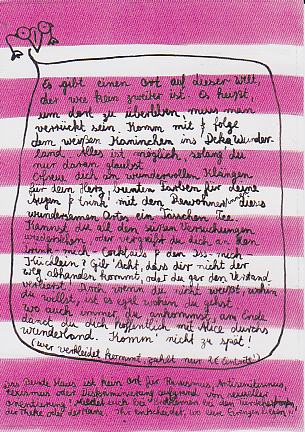 Es gibt einen Ort auf dieser Welt,
der wie kein zweiter ist. Es heißt,
um dort zu überleben, muss man
verrückt sein. Komm mit & folge
dem weißen Kaninchen ins DekaWunder-
land. Alles ist möglich, solang du
nur daran glaubst.
Erfreue dich an wundervollen Klängen
für dein Herz, bunten Farben für deine
Augen & trink mit den Bewohnern dieses
wundersamen Orts ein Tässchen Tee.
Kannst du all den süßen Versuchungen
wiederstehen oder vergreifst du dich an den
trink-mich-Cocktails & den Iss-mich
Küchlein? Gib' Acht, dass dir nicht der
weg abhanden kommt, oder du gar den Verstand
verlierst! Doch wenn du nicht weißt, wohin
du willst, ist es egal wohin du gehst
wo auch immer du ankommst, am Ende
tanzt du dich hoffentlich mit Alice durchs
wunderland. Komm' nicht zu spät!
(wer verkleidet kommt, zahlt nur 2€ Eintritt!)
Das Bunte Haus ist kein Ort für Rassismus, Antisemitismus,
Sexismus oder Diskriminierung aufgrund von sexueller
Orientierung! Meldet euch bei Problemen bei den
der Theke oder der Kasse. Ihr entscheidet, wo eure Grenzen liegen!!